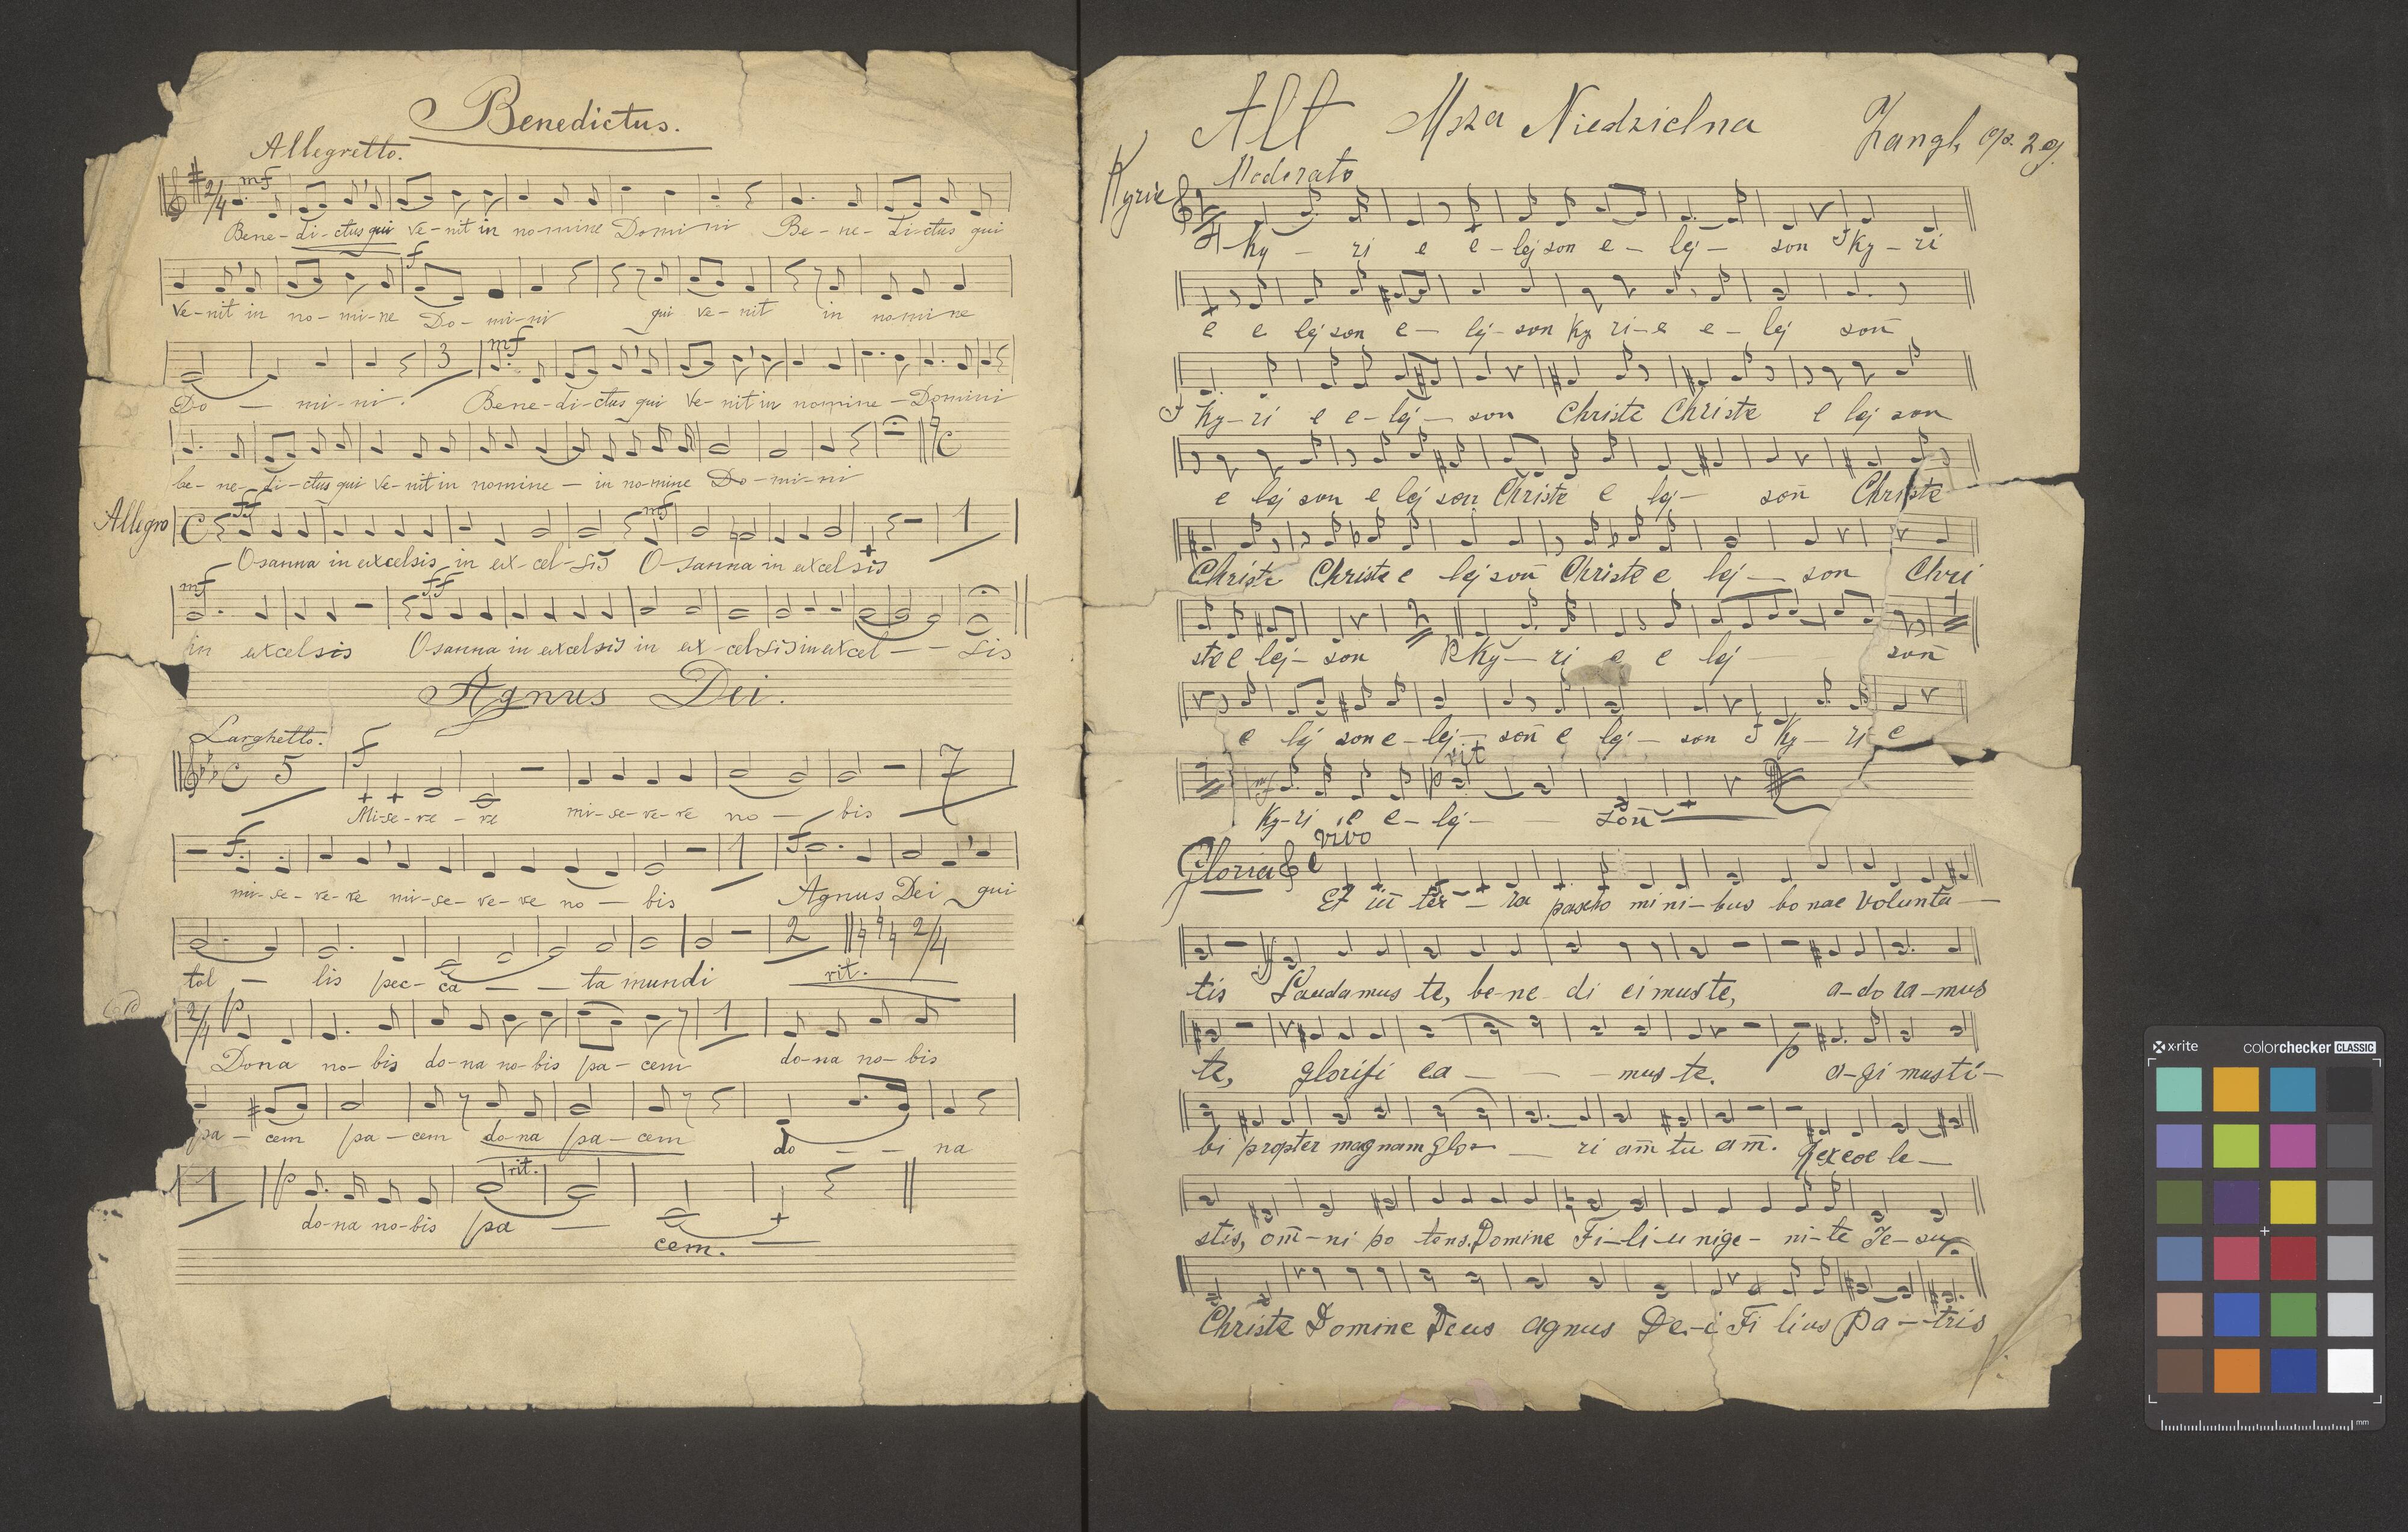 Benedictus.
Allegretto.
mf
2/4
Bene-di-ctus qui ve-nit in nomine Domini Be-ne-di-ctus qui
f
ve-nit in no-mi-ne Do-mi-ni qui ve-nit in nomine
3 mf
Do — mi-ni. Bene-di-ctus qui ve-nit in nomine – Domini
be-ne-di-ctus qui ve-nit in nomine — in no-mine Do-mi-ni
Allegro C ff mf 1
Osanna in excelsis in ex-cel-sis O-sanna in excelsis
mf ff
in excelsis Osanna in excelsis in ex-celsis in excel — – sis
Agnus Dei.
Larghetto.
C 5 f 7
Mi-se-re – re mi-se-re-re no — bis
f 1 f
mi-se-re-re mi-se-re-re no — bis Agnus Dei qui
2 2/4
tol — lis pec-ca — — ta mundi rit.
2/4 p 1
Dona no-bis do-na no-bis pa-cem do-na no-bis
pa — cem pa-cem do-na pa-cem do — – na
1 p rit.
do-na no-bis pa — cem. —
Alt Msza Niedzielna Zangl, op. 29.
Kyrie Moderato
Ky – ri e e-lejson e – lej – son Ky – ri
e e lejson e – lej-son Ky ri-e e – lej son
Ky-ri e e-lej – son Christe Christe e lej son
e lej son e lej son Christe e lej – son Christe
Christe Christe e lej son Christe e lej — son Chri
ste e lej – son Ky – ri e e lej — son
e lej son e – lej – son e lej – son Ky – ri e
rit
Ky-ri e e-lej – – son
vivo
Gloria C
Et in ter – ra pax ho mi ni-bus bo nae volunta —
tis Laudamus te, be-ne di ci mus te, a-do ra-mus
p
te, glorifi ca – – – mus te. a-gi mus ti –
bi propter magnam glo – — ri am tu am. Rex coe le –
stis, om-ni po tens. Domine Fi-li-u nige – ni-te Je-su
Christe Domine Deus agnus De-i Fi lius Pa – tris
x-rite colorchecker CLASSIC
mm